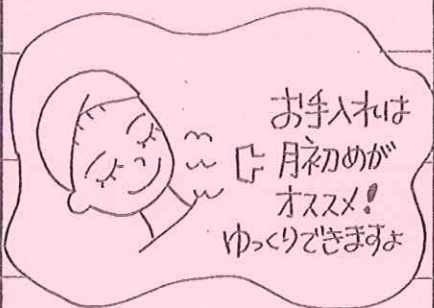 お手入れは
月初めが
オススメ!
ゆっくりできますよ